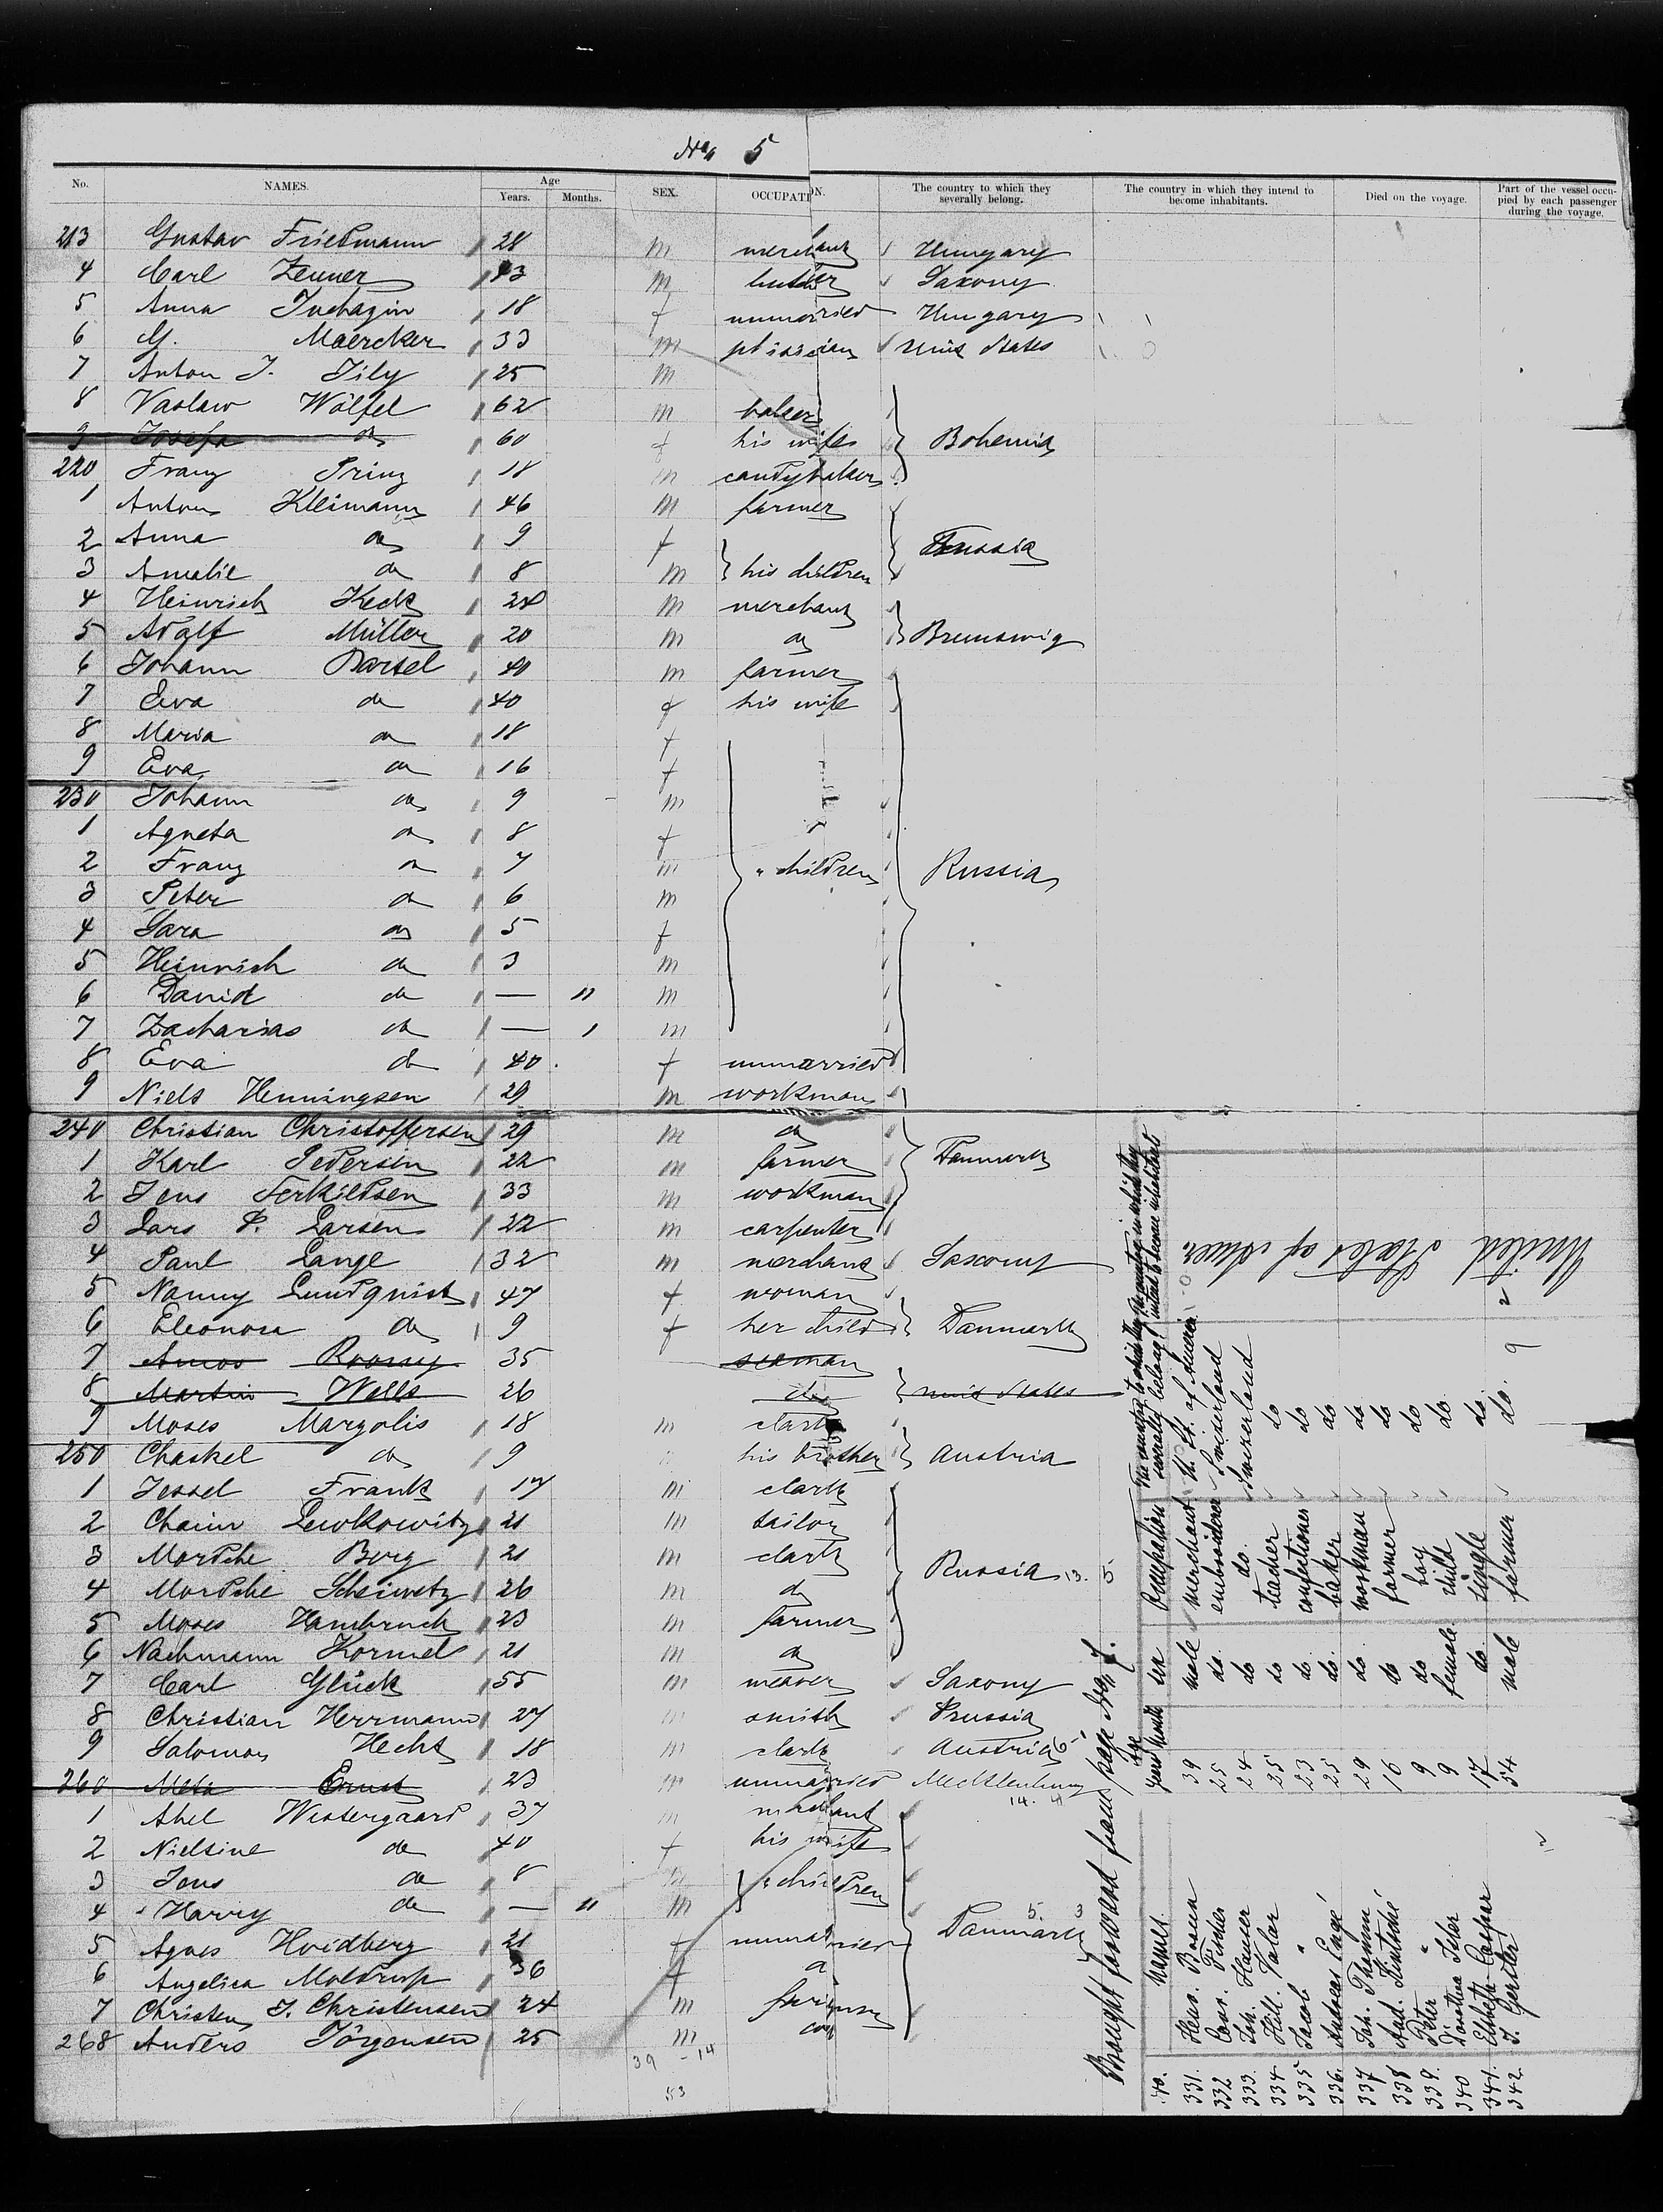 No. 5
No. NAMES. Age Years. Months. SEX. OCCUPATION. The country to which they severally belong. The country in which they intend to become inhabitants. Died on the voyage. Part of the vessel occupied by each passenger during the voyage.
213 Gustav Friedmann 28 m merchant Hungary
4 Carl Zenner 43 m butcher Saxony
5 Anna 18 f unmarried Hungary
6 G. Maercker 33 m Unit States
7 Anton J. Tily 25 m
8 Vaslaw Wölfel 62 m baker
9 Josefa do 60 f his wife Bohemia
220 Franz Prinz 18 m candybaker
1 Anton Kleimann 46 m farmer
2 Anna do 9 f
3 Amalie do 8 m his children
4 Heinrich Keck 28 m merchant
5 Adolf Müller 20 m do Brunswig
6 Johann Bartel 40 m farmer
7 Eva do 40 f his wife
8 Maria do 18 f
9 Eva do 16 f
230 Johann do 9 m
1 Agneta do 8 f
2 Franz do 7 m " children Russia
3 Peter do 6 m
4 Sara do 5 f
5 Heinrich do 3 m
6 David do — 11 m
7 Zacharias do — 1 m
8 Eva do 40 f unmarried
9 Niels Henningsen 29 m workman
240 Christian Christoffersen 29 m do
1 Karl Pedersen 22 m farmer Danmark
2 Jens Terkildsen 33 m workman
3 Lars P. Larsen 22 m carpenter
4 Paul Lange 32 m merchant Saxony
5 Nanny Lundquist 47 f woman
6 Eleonora do 9 f her child Danmark
7 Amos 35 seaman
8 Martin Wells 26 do unit States
9 Moses Margolis 18 m clark
250 Chaskel do 9 his brother Austria
1 Jessel Frank 17 m clark
2 Chaim Lewkowitz 21 m tailor
3 Mordche Berg 21 m clark
4 Mordche 26 m do Russia 13. 5
5 Moses Hambruch 23 m farmer
6 Nachmann Kormel 21 m do
7 Carl Glück 55 m weaver Saxony
8 Christian Herrmann 27 m smith Prussia
9 Salomon Hecht 18 m clark Austria 6
260 Meta Ernst 23 m unmarried Mecklenburg
14. 4
1 Abel Westergaard 37 m merchant
2 Nielsine do 40 f his wife
3 Jens do 8 m " children
4 Harry do — 11 m
5 Agnes Hvidberg 21 f unmarried Danmark 5 3
6 Angelica Moldrup 36 f do
7 Christen J. Christensen 24 m
268 Anders Jörgensen 25 m
39 - 14
53
Brought forward from page No 7.
No. Names. Age Years Months sex Occupation The country to which they severally belong The country in which they intend to become inhabitants
331. Henr. Bosen 39 male merchant U. St. of America
332 Conr. Fisher 25 do. embroiderer Switzerland
333. Joh. Hauser 24 do do. Swizerland
334 Hill. Jalar 25 do teacher do
335 Jacob " 23 do. confectioner do
336. Andreas Engé 25 do. baker do
337 Joh. Thommi 29 do. workman do
338 And. Kintschi 16 do farmer do
339. Peter " 9 do boy do
340 Dorothea 9 female child do.
341. Elsbeth Caspar 17 do single do.
342. J. Gartler 54 male farmer do. 9 2
United States of Amer.